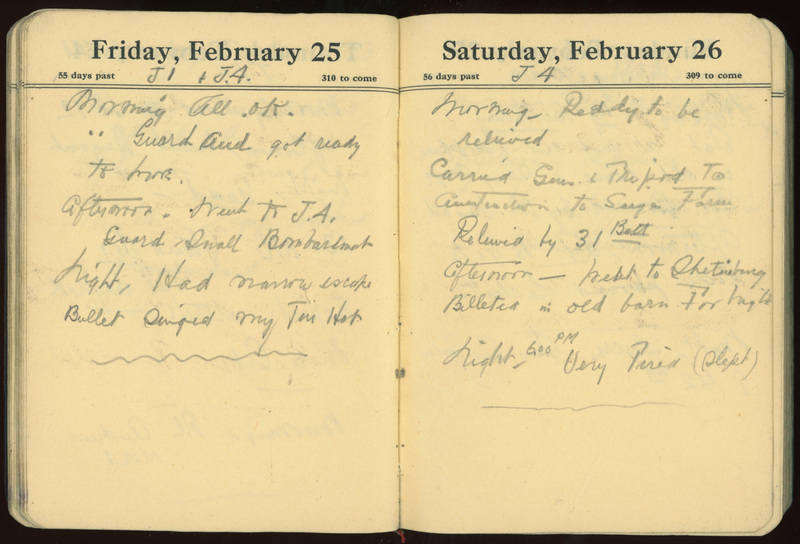 Friday, February 25
55 days past J1 & J.4. 310 to come
Morning All .OK.
" Guard and got ready
to work.
Afternoon. Went to J.4.
Guard Small Bombardment
Night, Had narrow escape
Bullet Singed my Tin Hat
Saturday, February 26
56 days past J 4 309 to come
Morning - Ready to be
relieved
Carried Guns. & Tripod to
to Farm
Relieved by 31 Batt
Afternoon — Went to
Billeted in old barn For Night
Night, 6:00 PM Very Tired (slept)